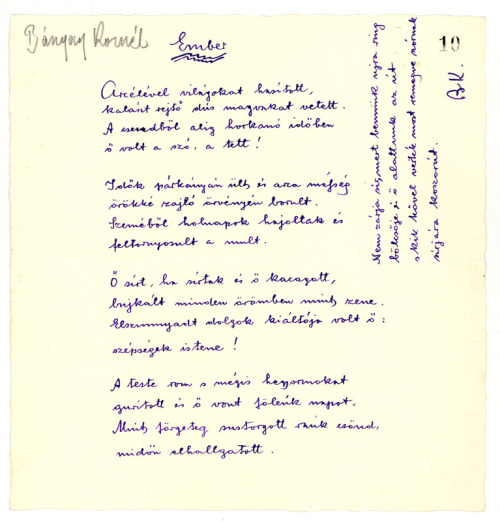 Bányay Kornél
Ember
10
Arcélével világokat hasított,
kalászt rejtő dús magvakat vetett.
A csendből alig horkanó időben
ő volt a szó, a tett!
Idők párkányán ült és arca mélység
örökké zajló örvényén borult.
Szeméből holnapok hajoltak és
feltornyosult a mult.
Ő sírt, ha sírtak és ő kacagott,
bujkált minden örömben mint zene.
Elszunnyadt dolgok kiáltója volt ő:
szépségek istene!
A teste rom s mégis hegyormokat
gurított és ő vont fölénk napot.
Mint förgeteg sustorgott ránk csönd,
midőn elhallgatott.
Nem zárja sír, mert bennünk ujra ring
bölcsője és ő alattunk az út
s kik kővel verték most remegve sírnak
sírjára koszorút.
B.K.